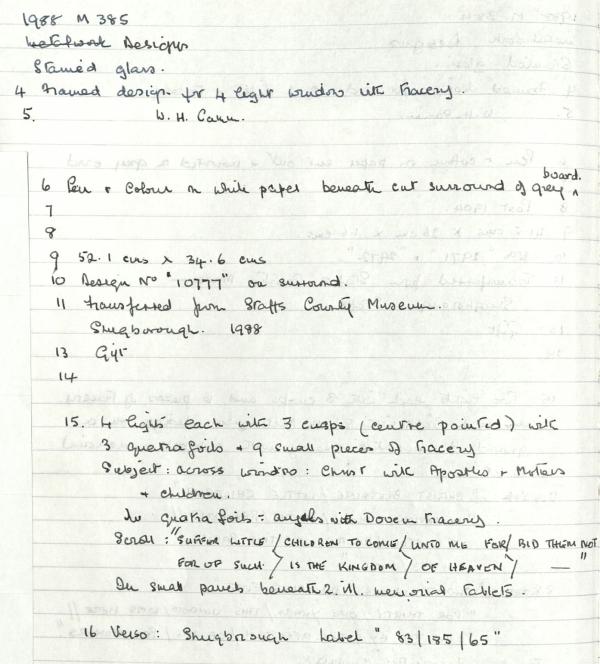 1988 M 385
Designs
Stained glass.
4 Framed design for 4 light window with Tracery.
5. W. H. Cann.
board.
6 Pen & Colour on white paper beneath cut surround of grey ^
7
8
9 52.1 cms x 34.6 cms
10 Design No "10777" on surround.
11 transferred from Staffs County Museum.
Shugborough. 1988
13 Gift
14
15. 4 lights each with 3 cusps (centre pointed) with
3 quatrafoils + 9 small pieces of Tracery
Subject: across window: Christ with Apostles + Mothers
+ children.
In quatrafoils = angels with Dove in Tracery.
Scroll: "SUFFER LITTLE / CHILDREN TO COME / UNTO ME FOR / BID THEM NOT
FOR OF SUCH / IS THE KINGDOM / OF HEAVEN / — "
In small panels beneath 2. ill. memorial Tablets.
16 Verso: Shugborough Label " 83/185/65 "